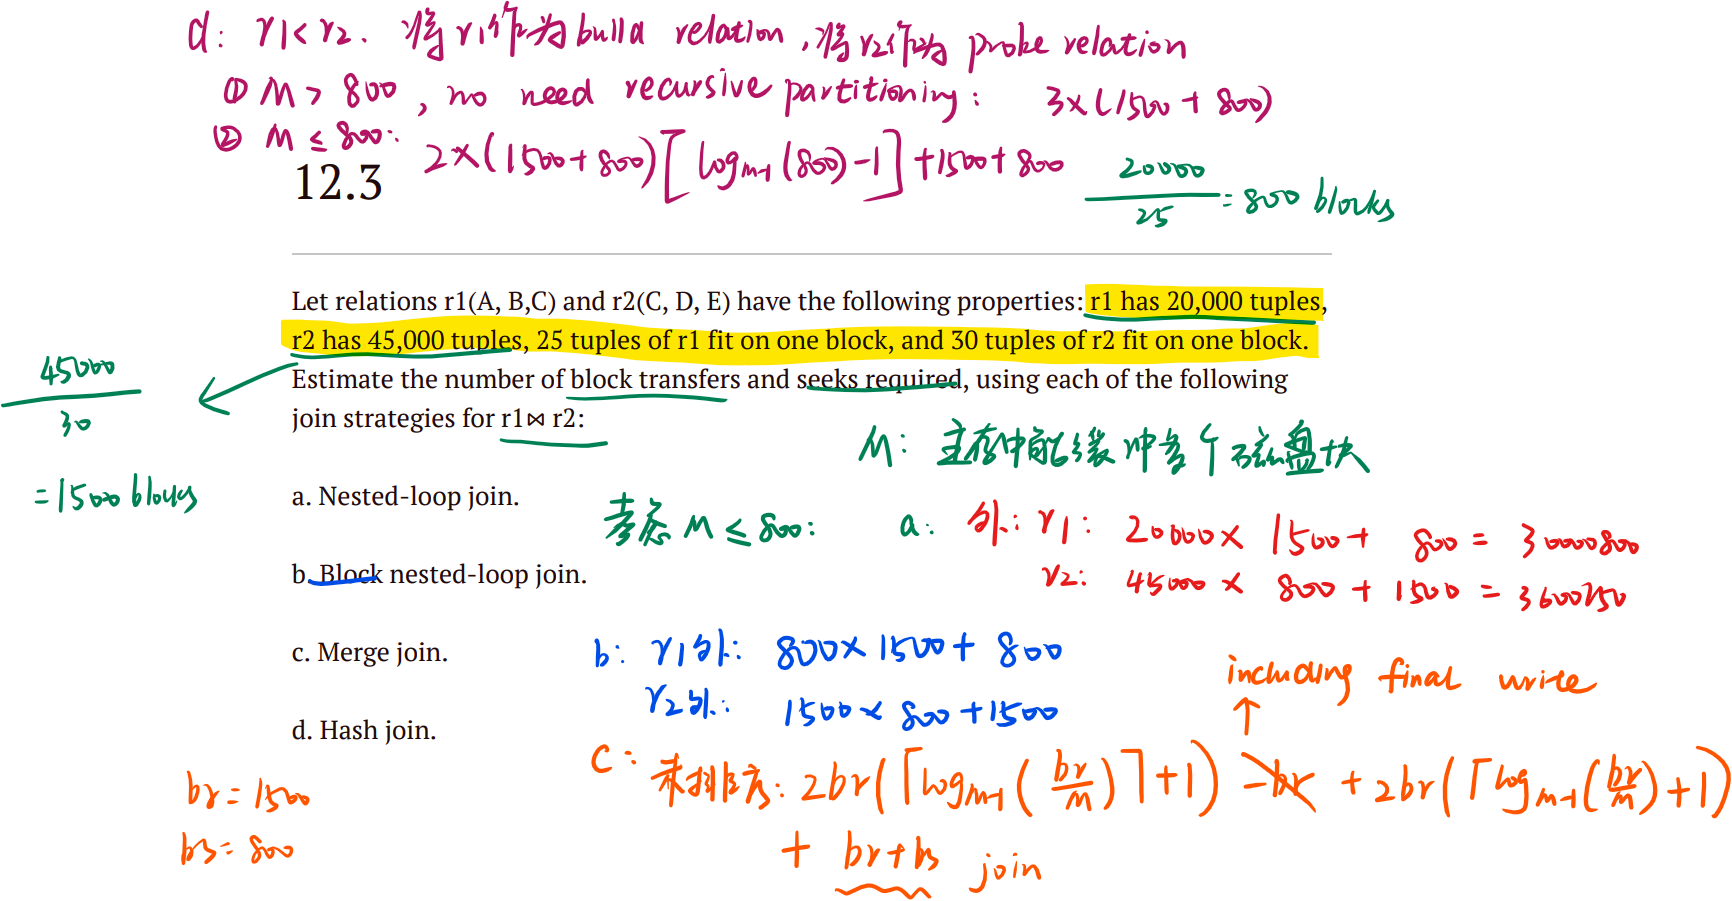 d: r1<r2. 将r1作为build relation,将r2作为 probe relation
① M > 800, no need recursive partitioning: 3×(1500+800)
② M ≤ 800: 2×(1500+800)[log_{M-1}(800)-1]+1500+800
12.3
20000/25 = 800 blocks
Let relations r1(A, B,C) and r2(C, D, E) have the following properties: r1 has 20,000 tuples,
r2 has 45,000 tuples, 25 tuples of r1 fit on one block, and 30 tuples of r2 fit on one block.
Estimate the number of block transfers and seeks required, using each of the following
join strategies for r1⋈ r2:
45000/30
=1500 blocks
M: 主存中能缓冲多少个磁盘块
a. Nested-loop join.
考虑 M ≤ 800:
a: 外: r1: 20000× 1500+ 800 = 30000800
r2: 45000 × 800 + 1500 =
b. Block nested-loop join.
b: r1外: 800×1500+ 800
r2外: 1500×800+1500
c. Merge join.
including final write
d. Hash join.
c: 未排序: 2br(⌈log_{M-1}(br/M)⌉+1) -br + 2br(⌈log_{M-1}(br/M)+1)
+ br+bs join
br=1500
bs=800